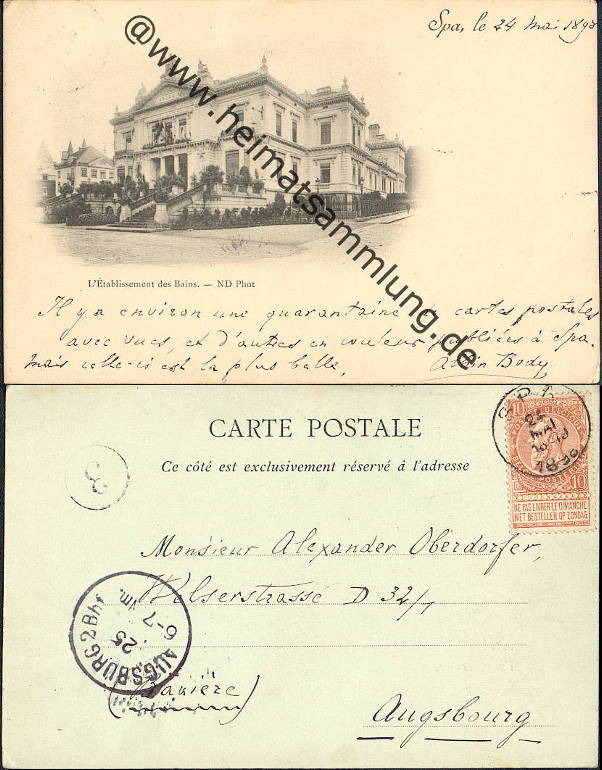 Spa, le 24 mai 189
@www.heimatsammlung.de
L'Établissement des Bains. — ND Phot
Il y a environ une quarantaine de cartes postales
avec vues, et d'autres en couleur publiées à Spa.
mais celle-ci est la plus belle. Albin Body
CARTE POSTALE
Ce côté est exclusivement réservé à l'adresse
SPA
24
MAI
BELGIQUE
10 10
NE PAS LIVRER LE DIMANCHE
NIET BESTELLEN OP ZONDAG
Monsieur Alexander Oberdorfer,
Welserstrasse D 32/1
AUGSBURG 2 Bhf
25
6-7 Nm.
(Bavière)
Augsbourg